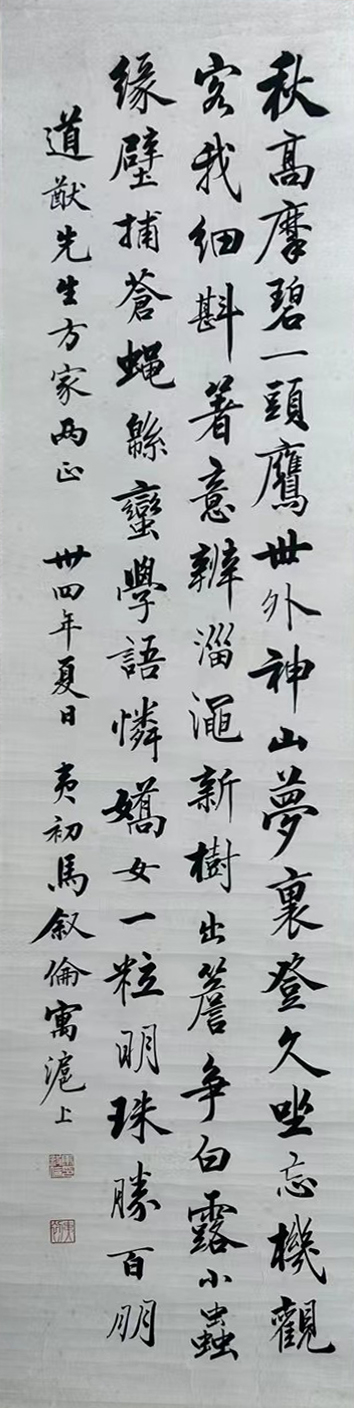 秋高摩碧一頭鷹世外神山夢裏登久坐忘機觀
客我細斟著意辨淄澠新樹出簷爭白露小蟲
緣壁捕蒼蠅緜蠻學語憐嬌女一粒明珠勝百朋
道猷先生方家兩正 卅四年夏日 夷初馬叙倫寓滬上